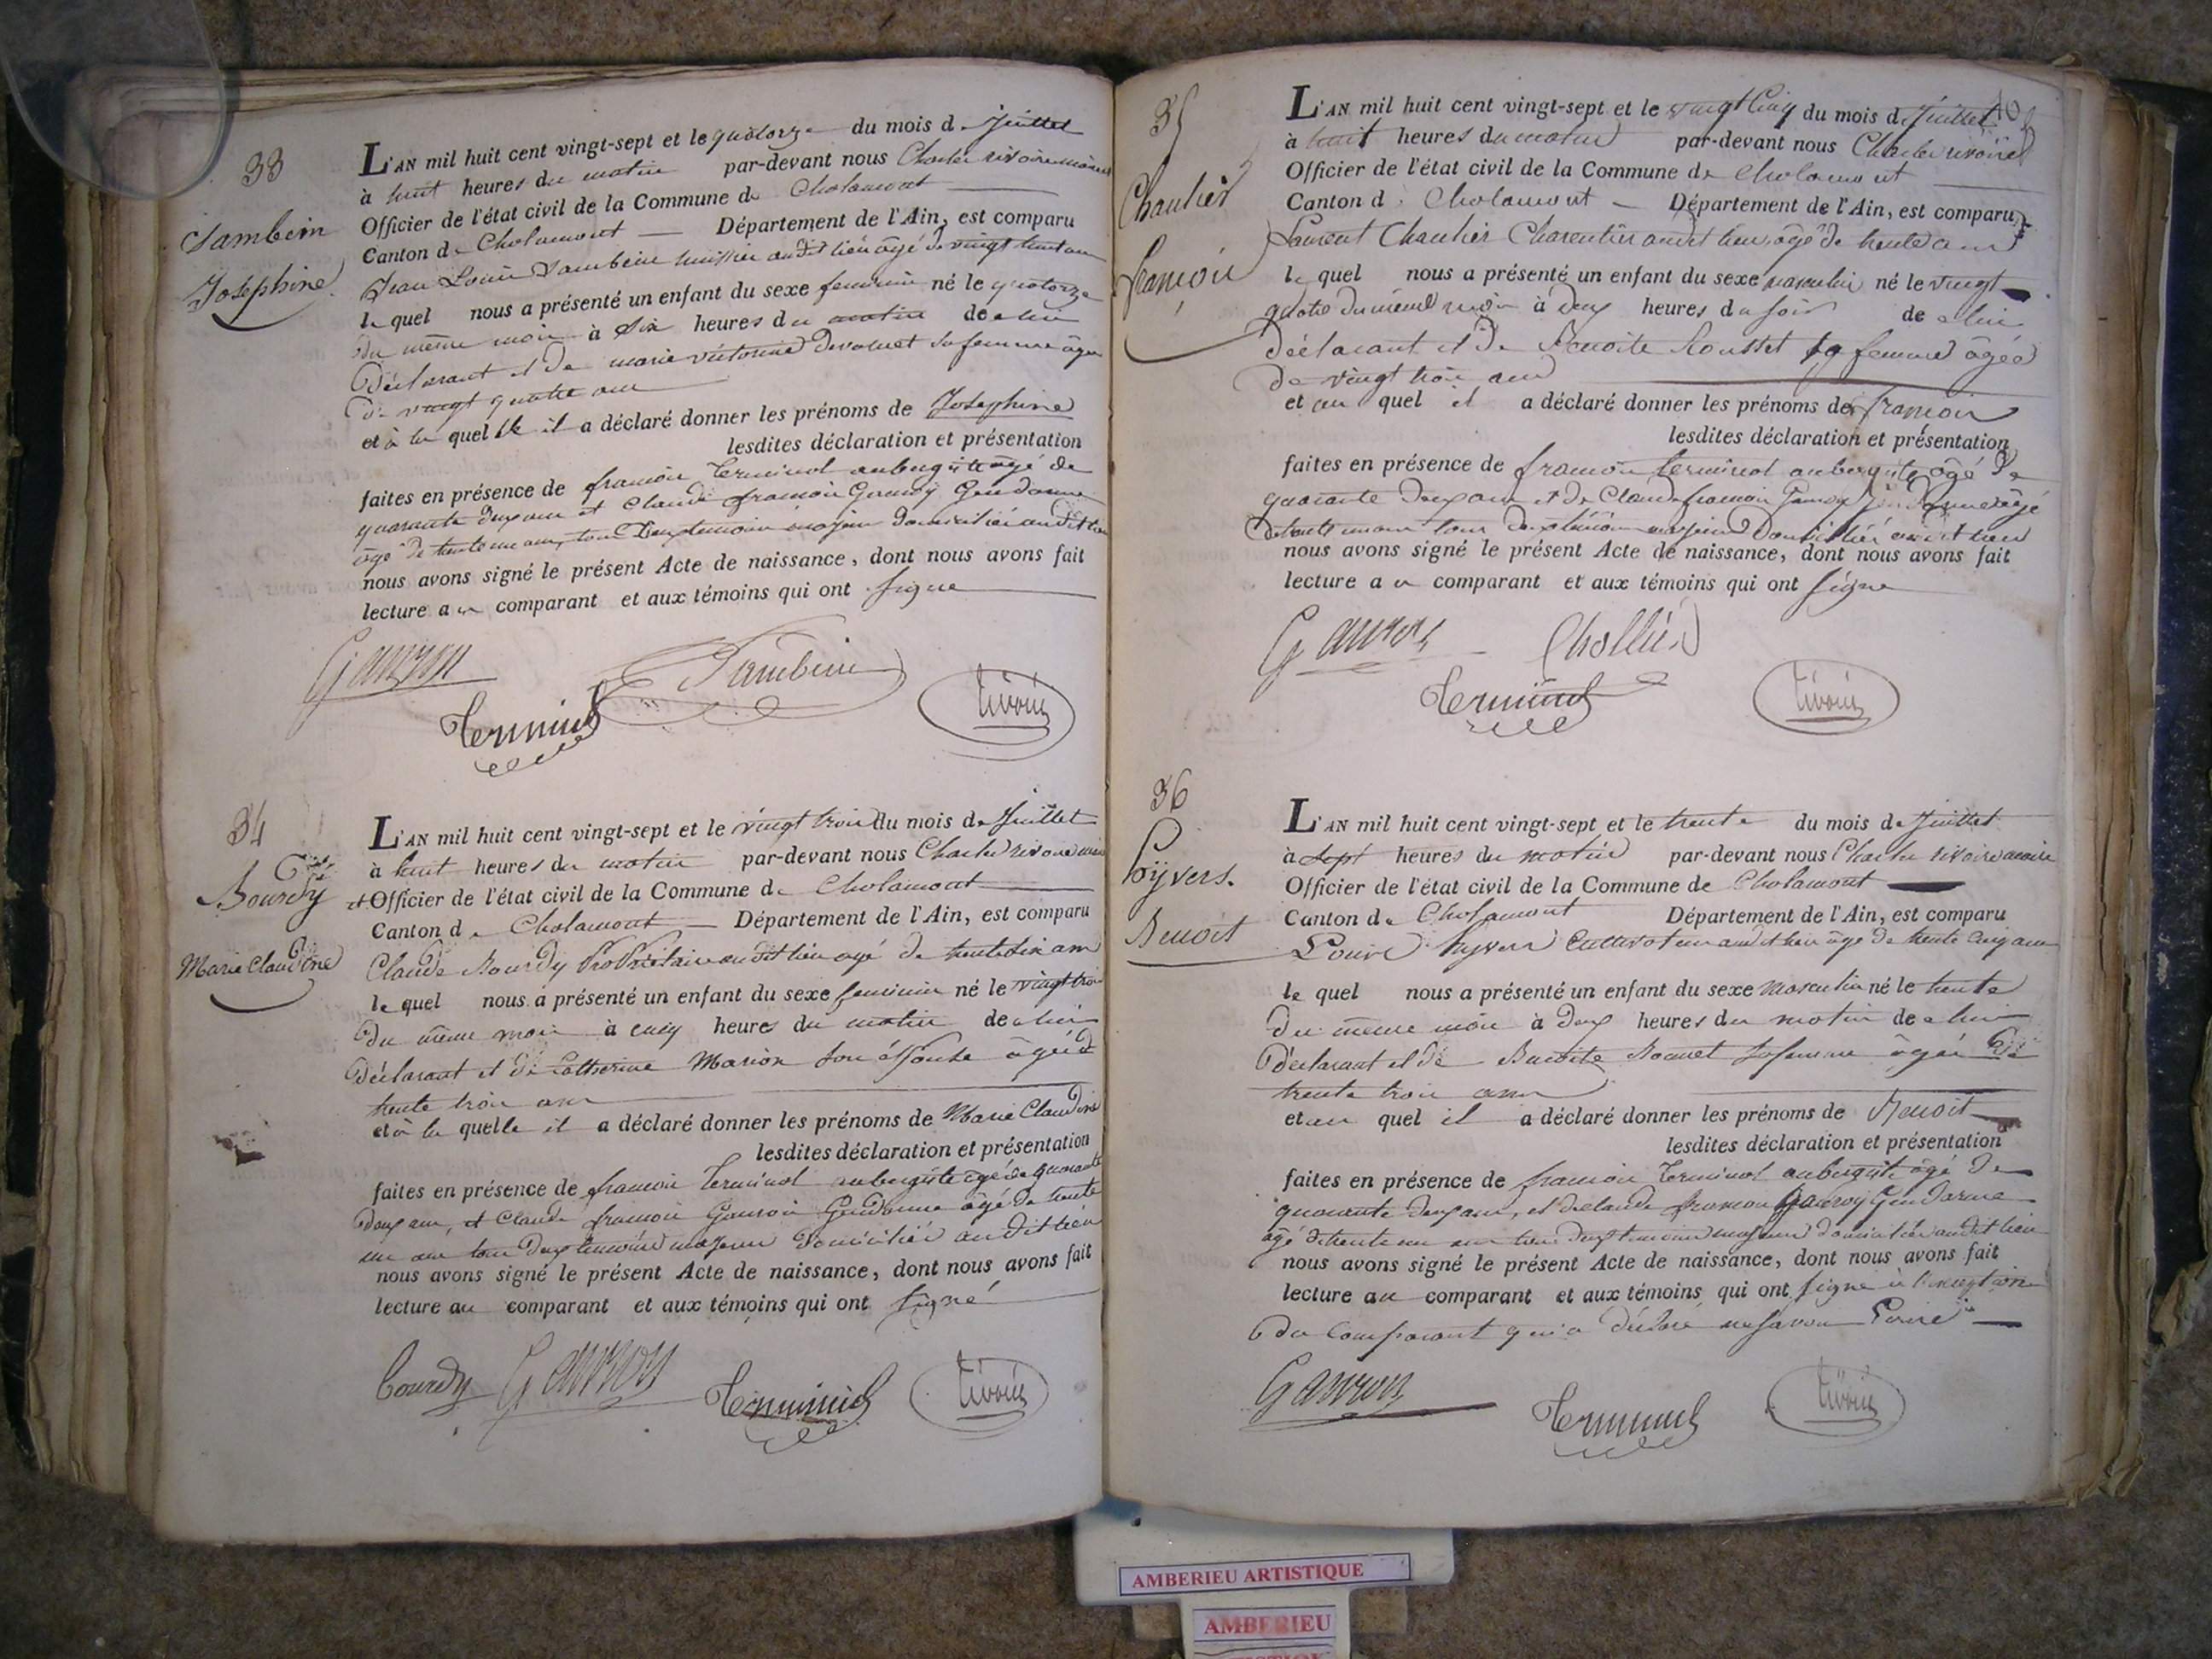 33
Sambein
Josephine
L'AN mil huit cent vingt-sept et le quatorze du mois de Juillet
à huit heures du matin par-devant nous Charles rivoire maire
Officier de l'état civil de la Commune de Cholamont
Canton de Cholamont Département de l'Ain, est comparu
Jean Louis Sambein huissier audit lieu agé de vingt huit ans
le quel nous a présenté un enfant du sexe feminin né le quatorze
du même mois à six heures du matin de lui
déclarant et de marie victorine sa femme âgée
de vingt quatre ans
et à la quelle il a déclaré donner les prénoms de Josephine
lesdites déclaration et présentation
faites en présence de francois Terminot aubergiste agé de
quarante deux ans et Claude francois Gauroy Gendarme
âgé de trente un ans, tous deux temoins majeurs domiciliés audit lieu
nous avons signé le présent Acte de naissance, dont nous avons fait
lecture au comparant et aux témoins qui ont signe
Gauroy Sambein
Terminot rivoire
34
Bourdy
Marie Claudine
L'AN mil huit cent vingt-sept et le vingt trois du mois de Juillet
à huit heures du matin par-devant nous Charles rivoire maire
et Officier de l'état civil de la Commune de Cholamont
Canton de Cholamont Département de l'Ain, est comparu
Claude Bourdy Proprietaire audit lieu agé de trente six ans
le quel nous a présenté un enfant du sexe feminin né le vingt trois
du même mois à cinq heures du matin de lui
déclarant et de Catherine Marion son épouse âgée de
trente trois ans
et à la quelle il a déclaré donner les prénoms de Marie Claudine
lesdites déclaration et présentation
faites en présence de francois Terminot aubergiste agé de quarante
deux ans, et Claude francois Gauroi Gendarme âgé de trente
un ans tous deux temoins majeurs domiciliés audit lieu
nous avons signé le présent Acte de naissance, dont nous avons fait
lecture au comparant et aux témoins qui ont signé
bourdy Gauroy Terminot rivoire
35
Chaulier
francois
L'AN mil huit cent vingt-sept et le vingt Cinq du mois de Juillet
à huit heures du matin par-devant nous Charles rivoire
Officier de l'état civil de la Commune de Cholamont
Canton de Cholamont Département de l'Ain, est comparu
Laurent Chaulier Charentier audit lieu âgé de trente ans
le quel nous a présenté un enfant du sexe masculin né le vingt
quatre du même mois à deux heures du soir de lui
déclarant et de Benoite Rousset sa femme âgée
de vingt trois ans
et au quel il a déclaré donner les prénoms de francois
lesdites déclaration et présentation
faites en présence de francois Terminot aubergiste âgé de
quarante deux ans et de Claude francois Gauroy Gendarme âgé
de trente un ans tous deux témoins majeurs domiciliés audit lieu
nous avons signé le présent Acte de naissance, dont nous avons fait
lecture au comparant et aux témoins qui ont signe
Gauroy Chollier
Terminot rivoire
36
Poÿvers.
Benoit
L'AN mil huit cent vingt-sept et le trente du mois de Juillet
à sept heures du matin par-devant nous Charles rivoire maire
Officier de l'état civil de la Commune de Cholamont
Canton de Cholamont Département de l'Ain, est comparu
Louis Cultivateur audit lieu âgé de trente cinq ans
le quel nous a présenté un enfant du sexe Masculin né le trente
du même mois à deux heures du matin de lui
déclarant et de Benoite sa femme âgée de
trente trois ans
et au quel il a déclaré donner les prénoms de Benoit
lesdites déclaration et présentation
faites en présence de francois Terminot aubergiste âgé de
quarante deux ans, et de Claude francois Gauroy Gendarme
âgé de trente un ans tous deux temoins majeurs domiciliés audit lieu
nous avons signé le présent Acte de naissance, dont nous avons fait
lecture au comparant et aux témoins qui ont signe à l'exception
du Comparant qui a déclaré ne savoir
Gauroy Terminot rivoire
AMBERIEU ARTISTIQUE
AMBERIEU